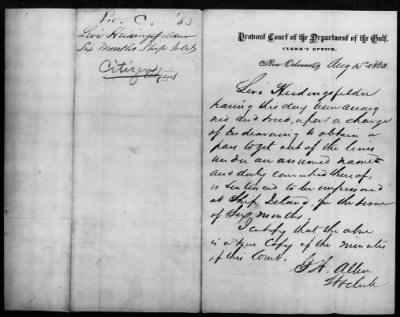 Pro. C. '63
Levi Herdingsfelder
Six months Ship Isld
Citizen
Provost Court of the Department of the Gulf.
CLERK'S OFFICE,
New Orleans, Aug 15th 1863.
Levi Herdingsfelder
having this day been arraig
ned and tried, upon a charge
of Endeavoring to obtain a
pass to get out of the lines
under an assumed name
and duly convicted thereof,
is sentenced to be imprisoned
at Ship Island, for the term
of Six months.
I certify that the above
is a true Copy of the minutes
of this Court.
G. H. Allen
Clerk